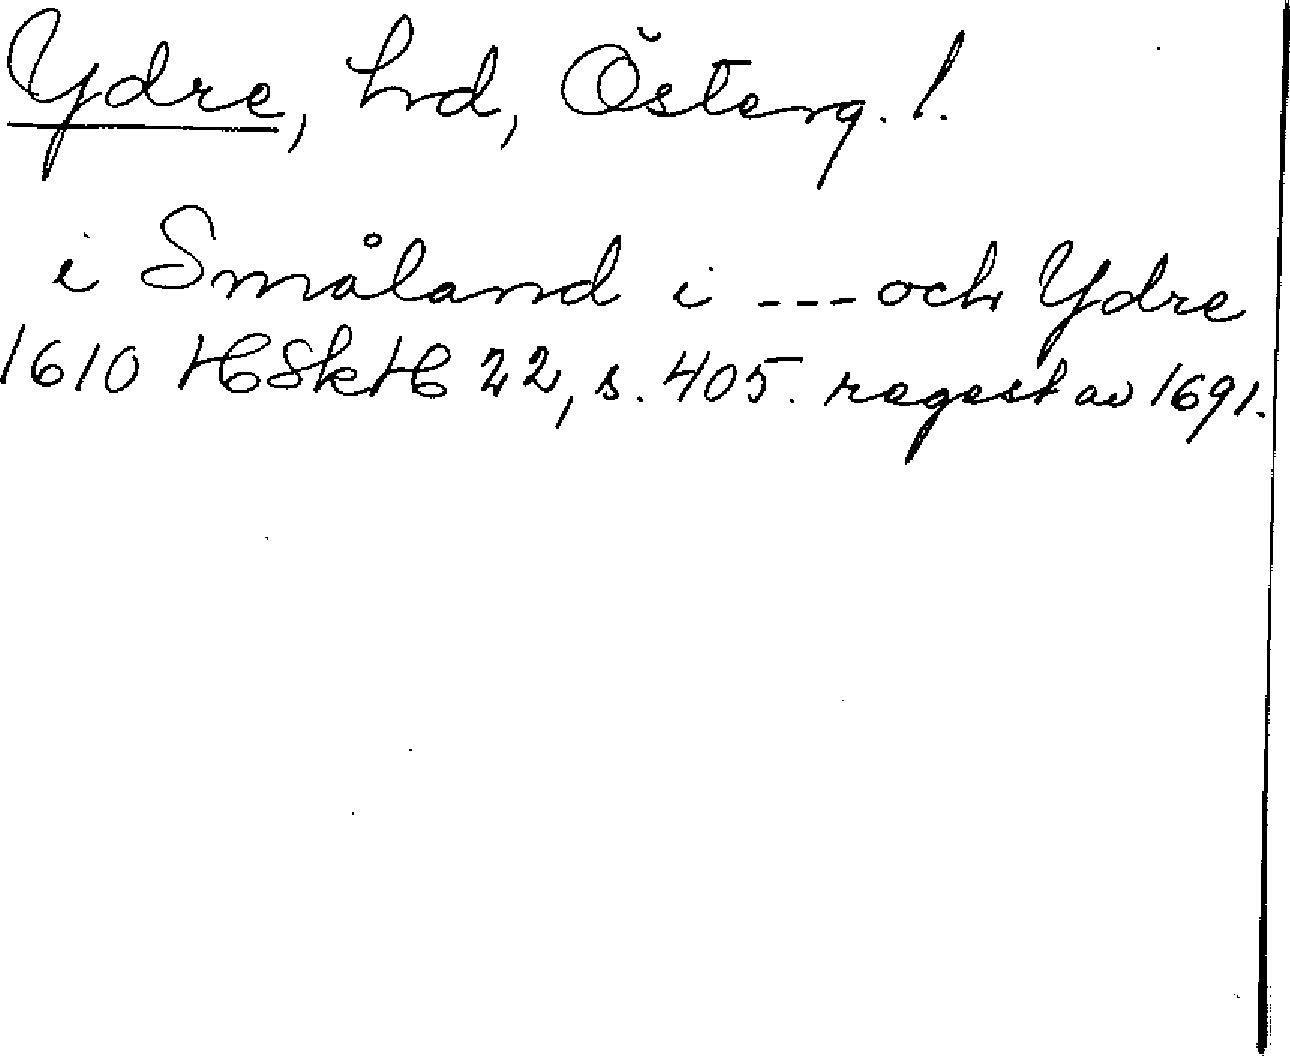 Ydre, hd, Österg. l.
i Småland i --- och Ydre
1610 HSkH 22, s. 405. regest av 1691.